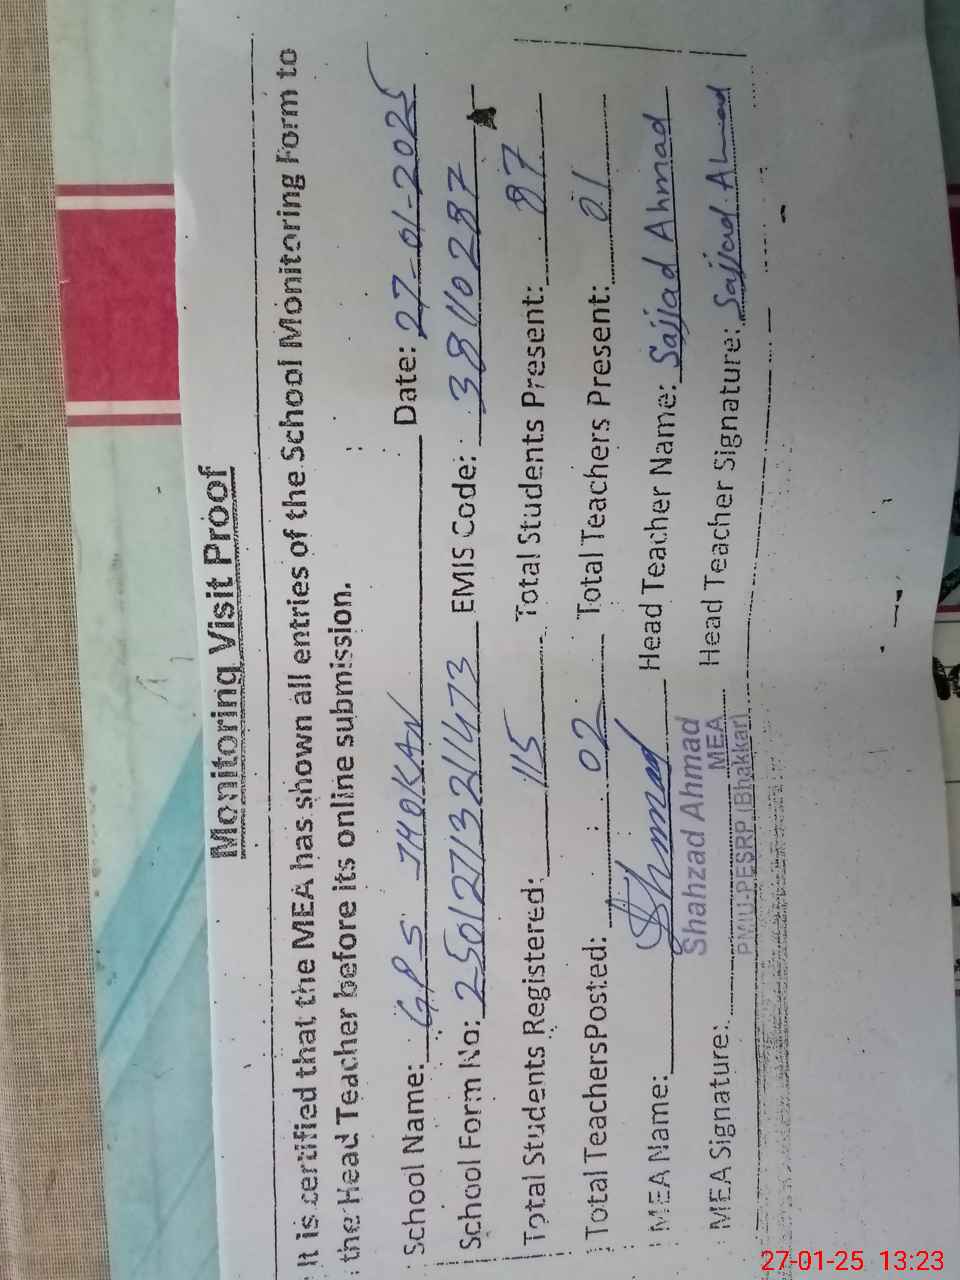 Monitoring Visit Proof
It is certified that the MEA has shown all entries of the School Monitoring Form to
the Head Teacher before its online submission.
School Name: GPS JHOKAN Date: 27-01-2025
School Form No: 25012713211473 EMIS Code: 38110287
Total Students Registered: 115 Total Students Present: 87
Total Teachers Posted: 02 Total Teachers Present: 01
MEA Name: Head Teacher Name: Sajjad Ahmad
Shahzad Ahmad
MEA Signature: MEA Head Teacher Signature: Sajjad Ahmad
PMIU-PESRP (Bhakkar)
27-01-25 13:23